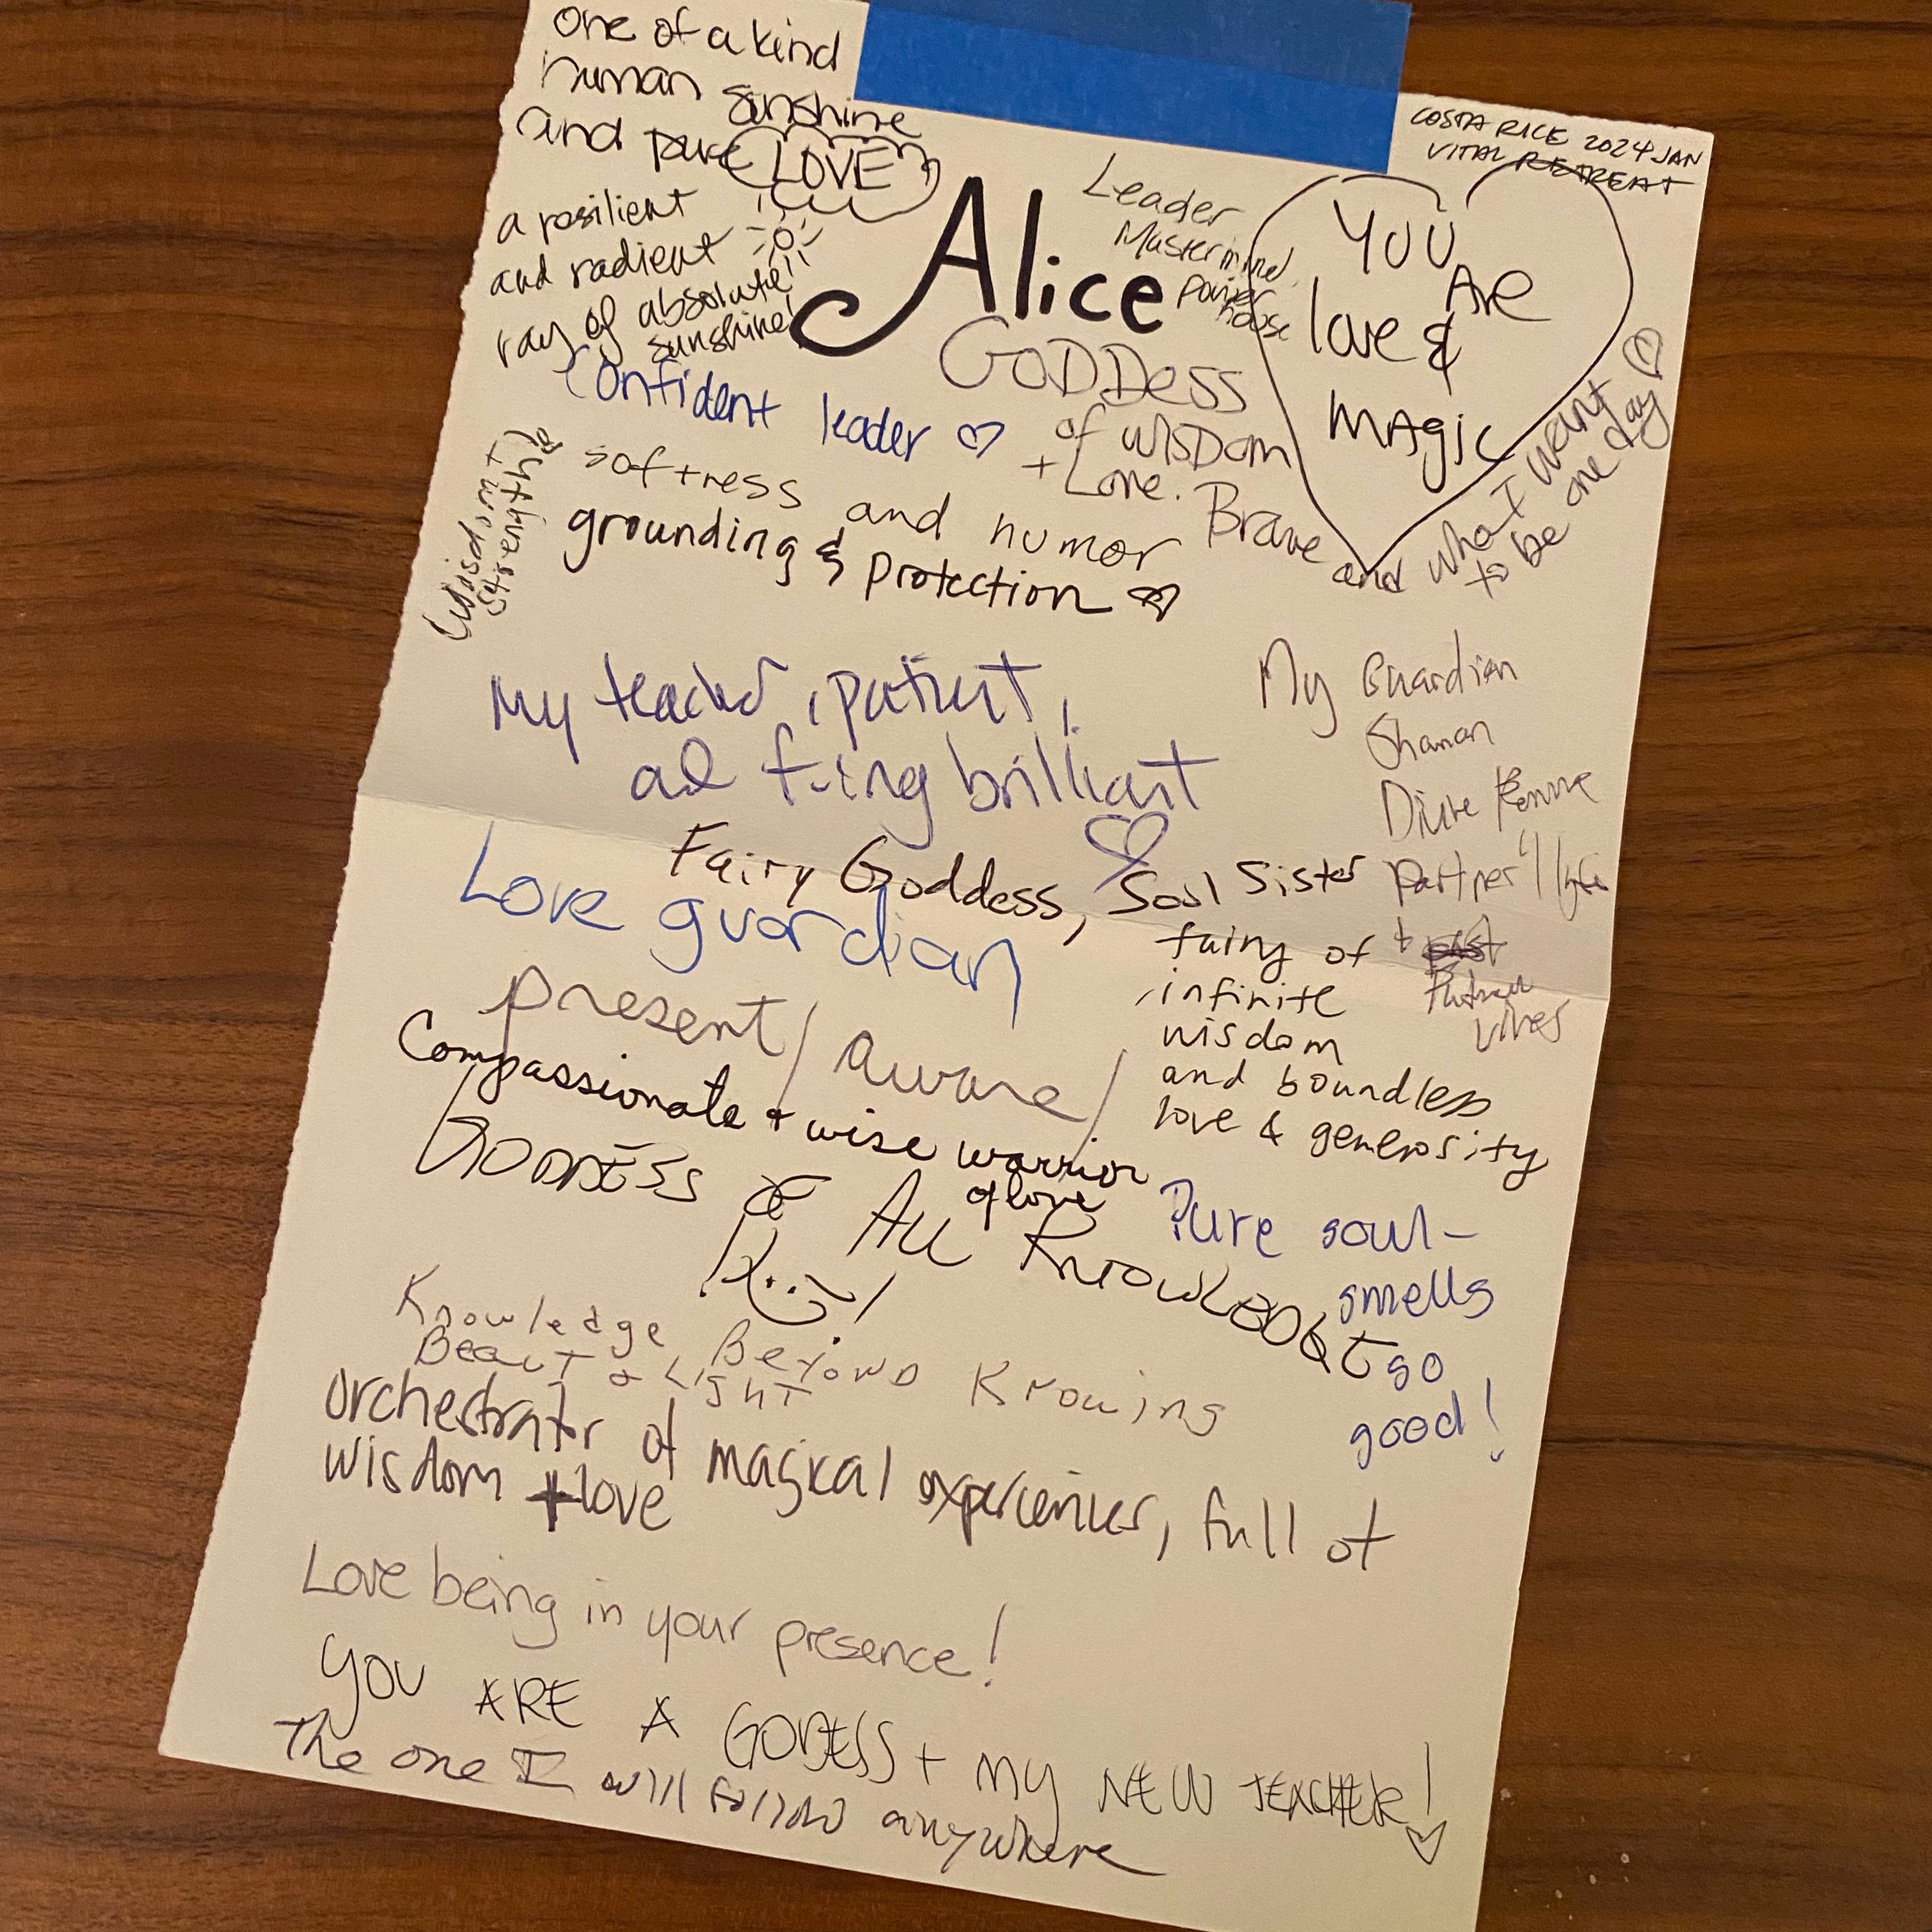 COSTA RICE 2024 JAN
VITAL RETREAT
one of a kind
human sunshine
and pure LOVE
a resilient
and radient
ray of absolute
sunshine!
Alice
Leader
Mastermind,
power
house
YOU
ARE
love &
MAGIC
GODDess
of WISDOM
+ Love.
Confident leader ♡
Wisdom +
strength
softness and humor
grounding & protection ♡
Brave and what I want
to be one day ♡
My teacher, patient,
ad f-ing brilliant
♡
My Guardian
Shaman
Partner
+ past
lives
Fairy Goddess, Soul Sister
Love guardian
fairy of
infinite
wisdom
and boundless
love & generosity
present / aware /
Compassionate + wise warrior
of love
GODDESS OF ALL KNOWLEDGE
Pure soul-
smells
so
good!
Knowledge Beyond Knowing
Beauty & Light
orchestrator of magical experiences, full of
wisdom + love
Love being in your presence!
YOU ARE A GODESS + MY NEW TEACHER! ♡
The one I will follow anywhere